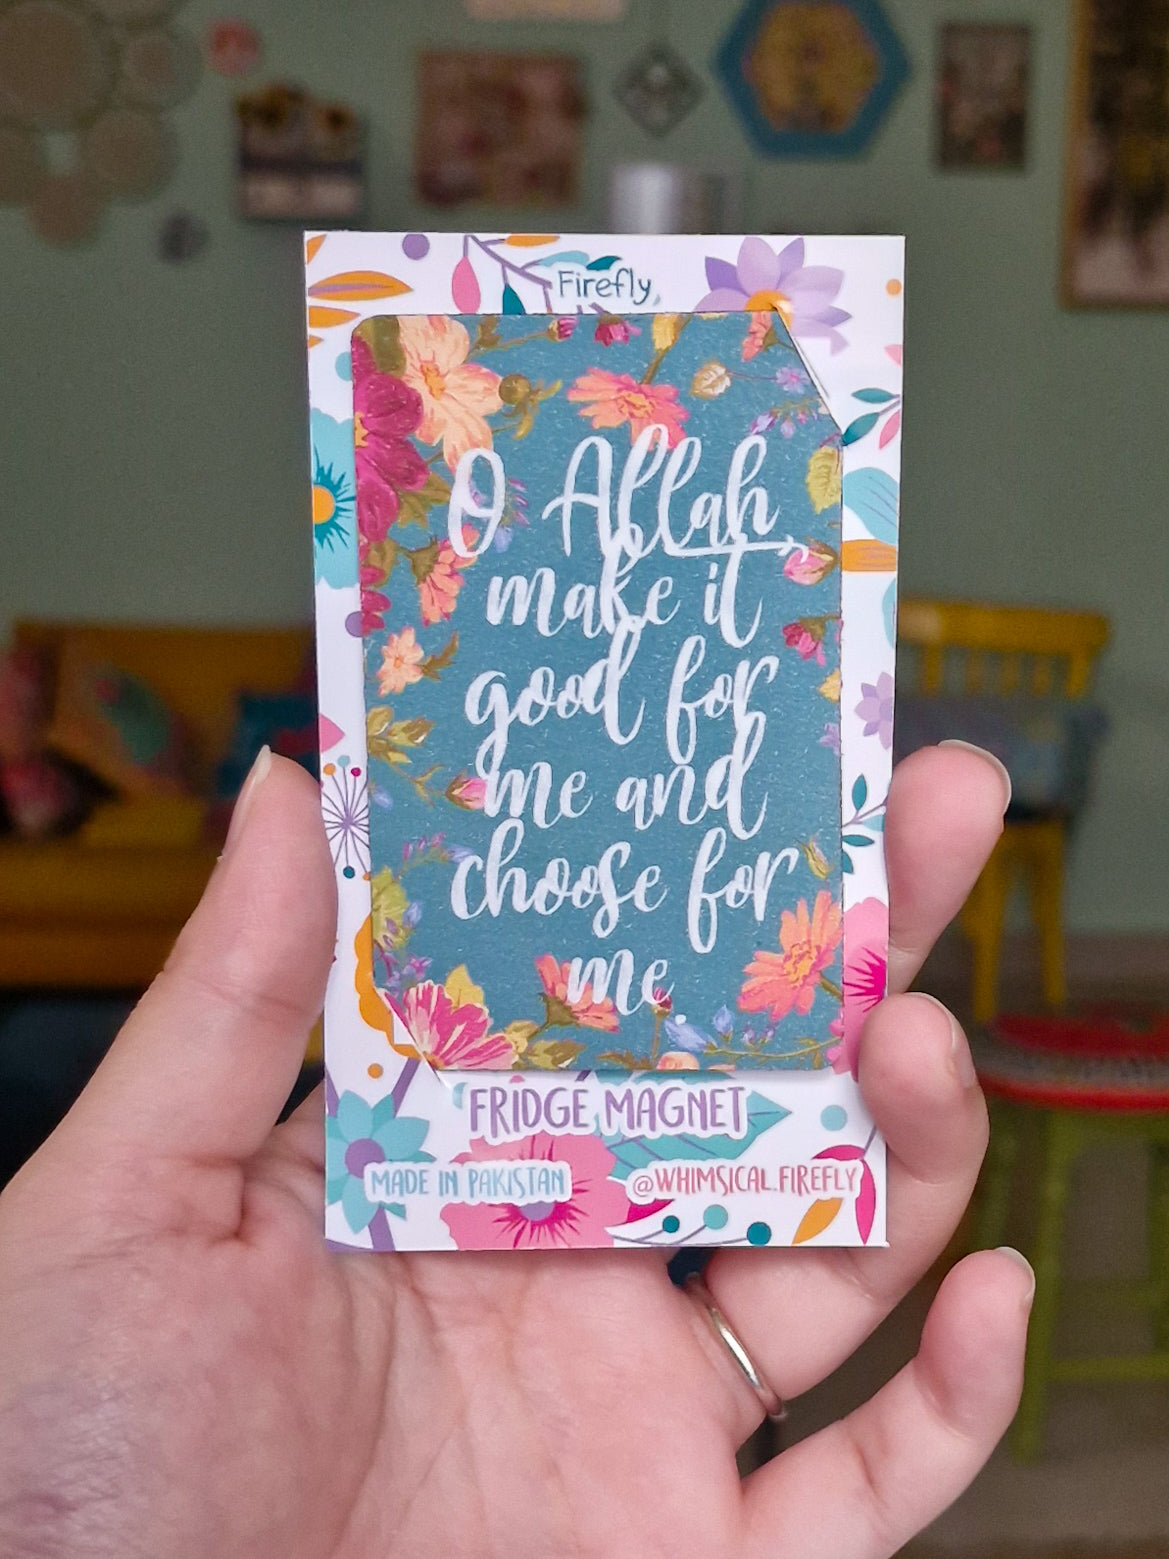 Firefly
O Allah
make it
good for
me and
choose for
me
FRIDGE MAGNET
MADE IN PAKISTAN
@WHIMSICAL.FIREFLY